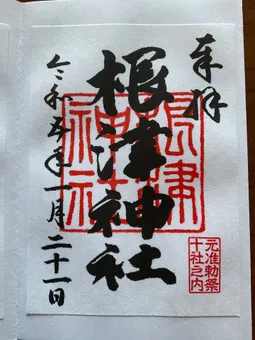 奉拝
根津神社
令和五年一月二十一日
根津
神社
元准勅祭
十社之内